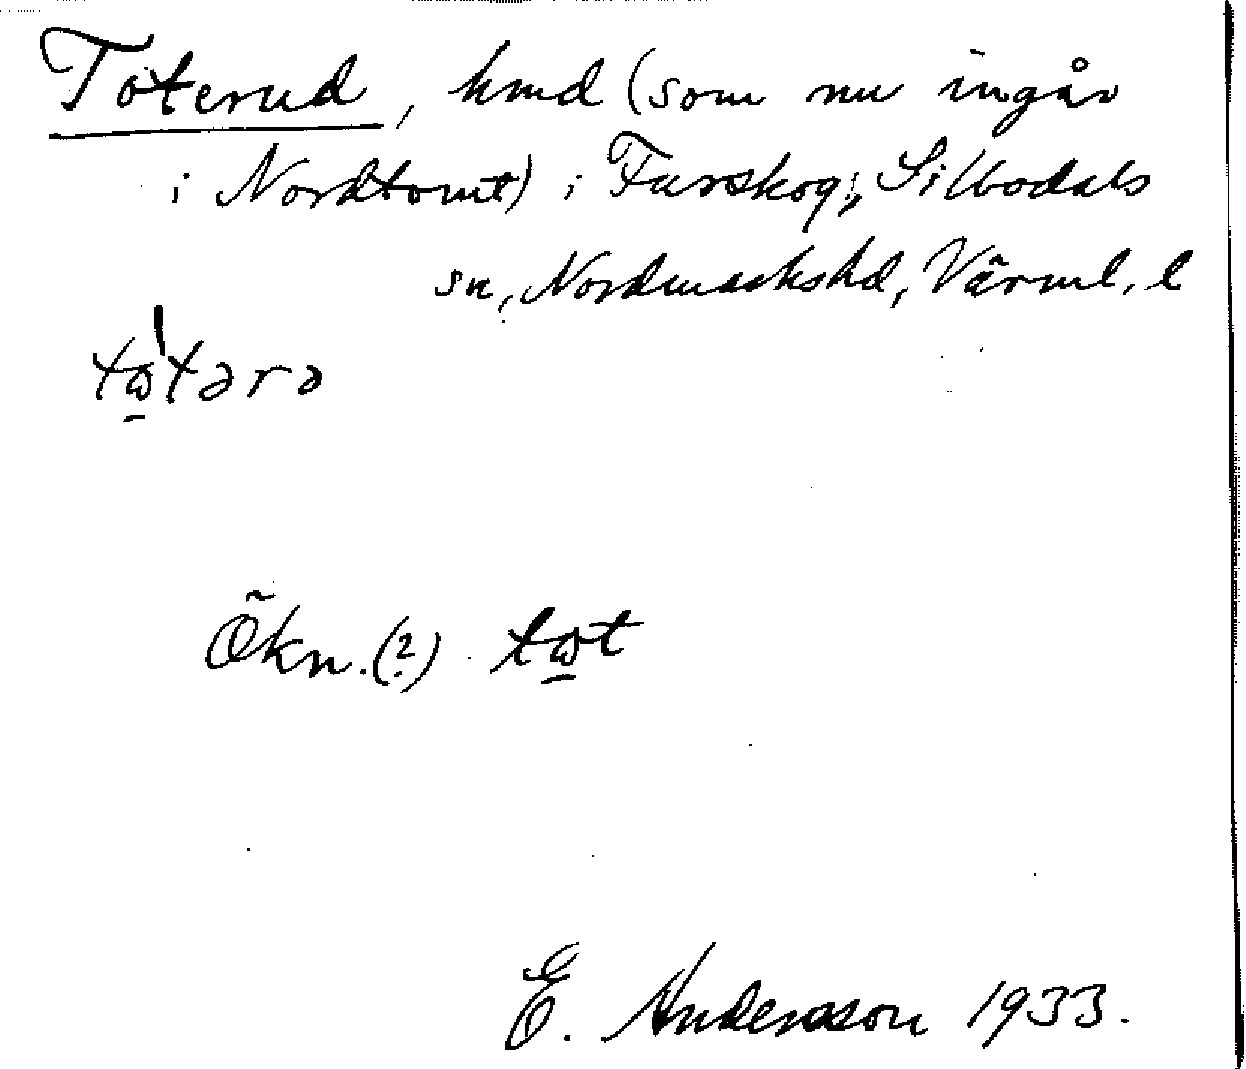 Toterud, hmd (som nu ingår
i Nordtomt) i Furskog, Sillbodals
sn, Nordmarkshd, Värml. l
tω̱̍tərə
Ökn. (?) tω̱t
E. Andersson 1933.